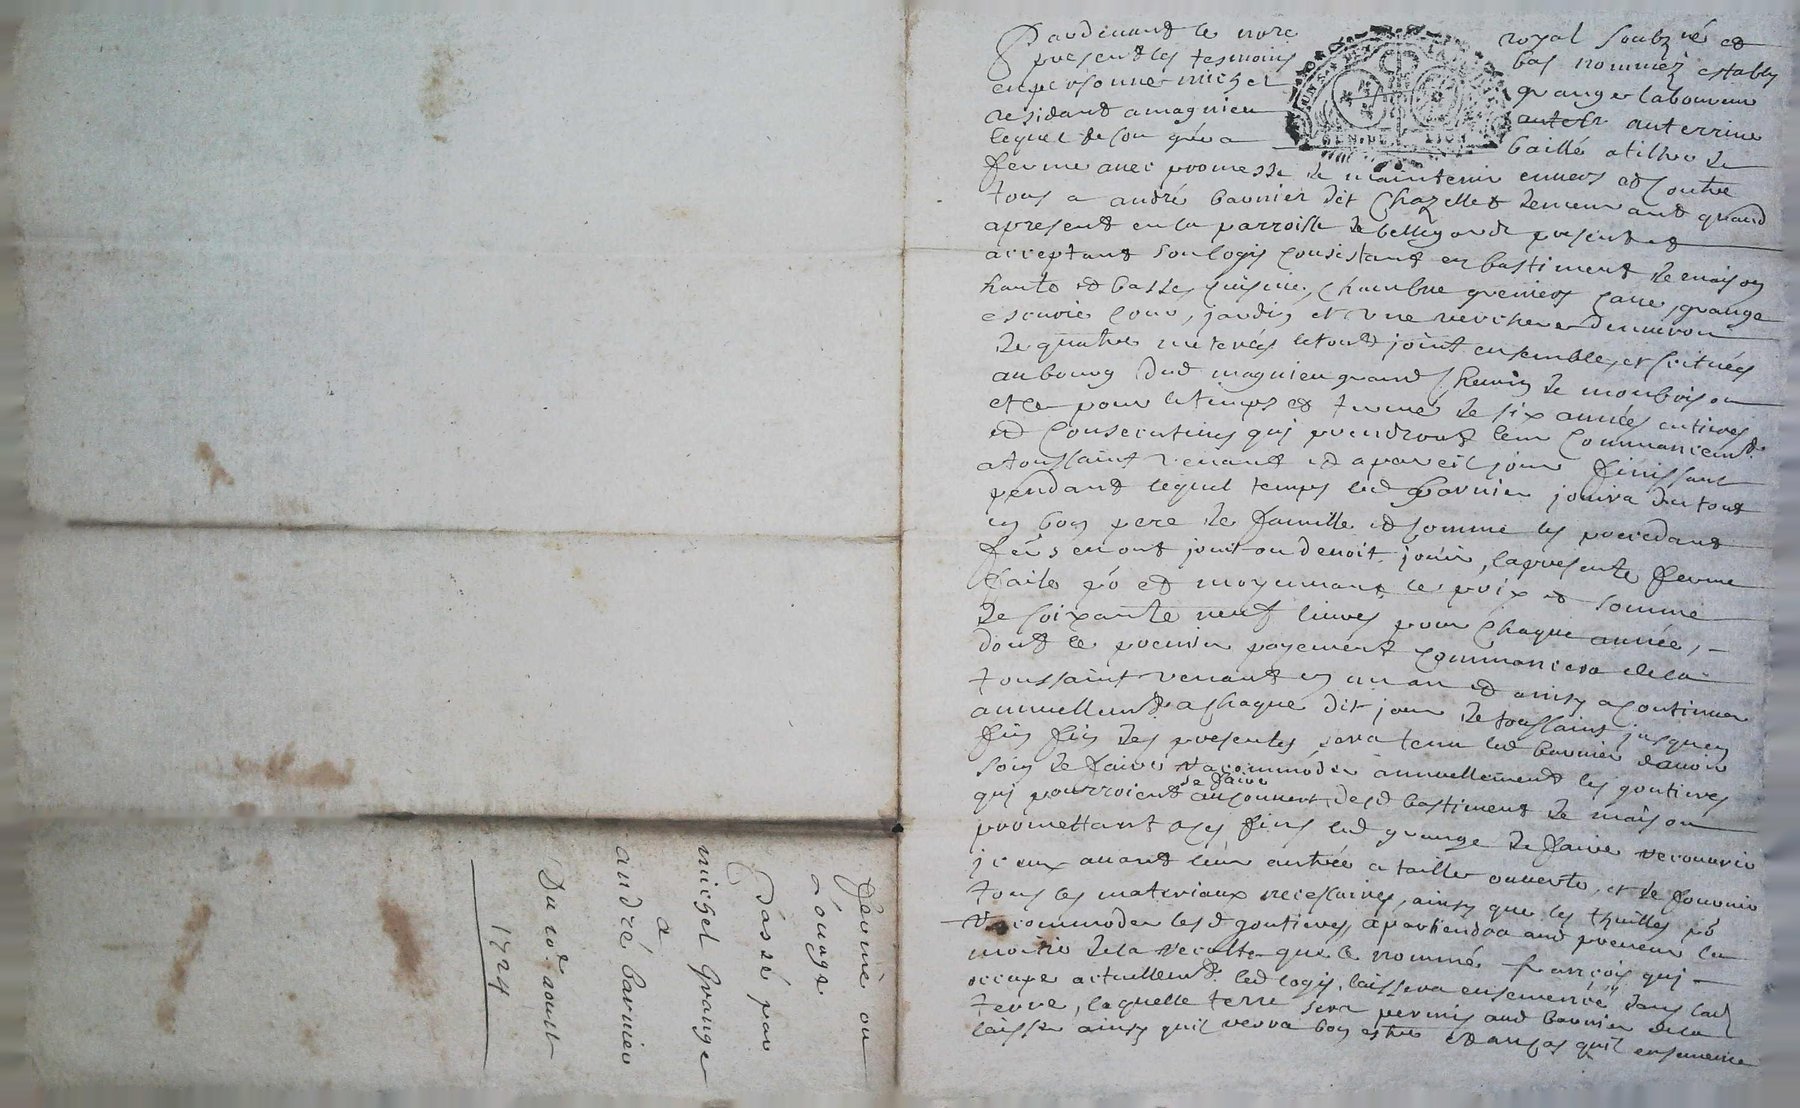 Pardevant le nore royal soubzné et
present les tesmoins bas nommez estably
en personne michel grange laboureur
residant a magnieu auterrine
lequel de son gré a baillé a tiltre de
ferme avec promesse de maintenir envers et contre
tous a andré barnier dit Chazellet demeurant quand
apresent en la parroisse de bellegarde present et
acceptant son logis consistant en bastiment de maison
haute et basse, cuisine, chambre greniers cave, grange
escurie cour, jardin et une verchere denviron
de quatre meterés le tout joint ensemble, et scitués
au bourg dud magnieu grand chemin de montbrison
et ce pour le temps et terme de six années entieres
et consecutives qui prendront leur commancemt
a toussaint venant et a pareil jour finissant
pendant lequel temps led barnier jouira du tout
en bon pere de famille et comme les precedants
fers en ont jouit ou devoit jouir, la presente ferme
faite po et moyennant le prix et somme
de soixante neuf livres pour chaque année,
dont le premier payement commancera de la
toussaint venant en un an et ainsy a continuer
annuellemt a chaque dit jour de toussaint jusques
fin des presentes, sera tenu led barnier davoir
soin de faire racommoder annuellement les goutieres
qui pourroient se faire au couvert desd bastiment de maison
promettant a ces fins led grange de faire recouvrir
iceux avant leur entrée a taille ouverte, et de fournir
tous les materiaux necessaires, ainsy que les thuilles po
racommoder lesd goutieres, apartiendra aud preneur la
moitié de la recolte que le nommé françois qui
occupe actuellemt led logis, laissera ensemencé dans lad
terre, laquelle terre sera permis aud barnier de la
laisser ainsy quil verra bon estre et au cas quil ensemence
ferme ou
louage
Passé par
michel Grange
a
andré barnier
Du 10e aoust
1724